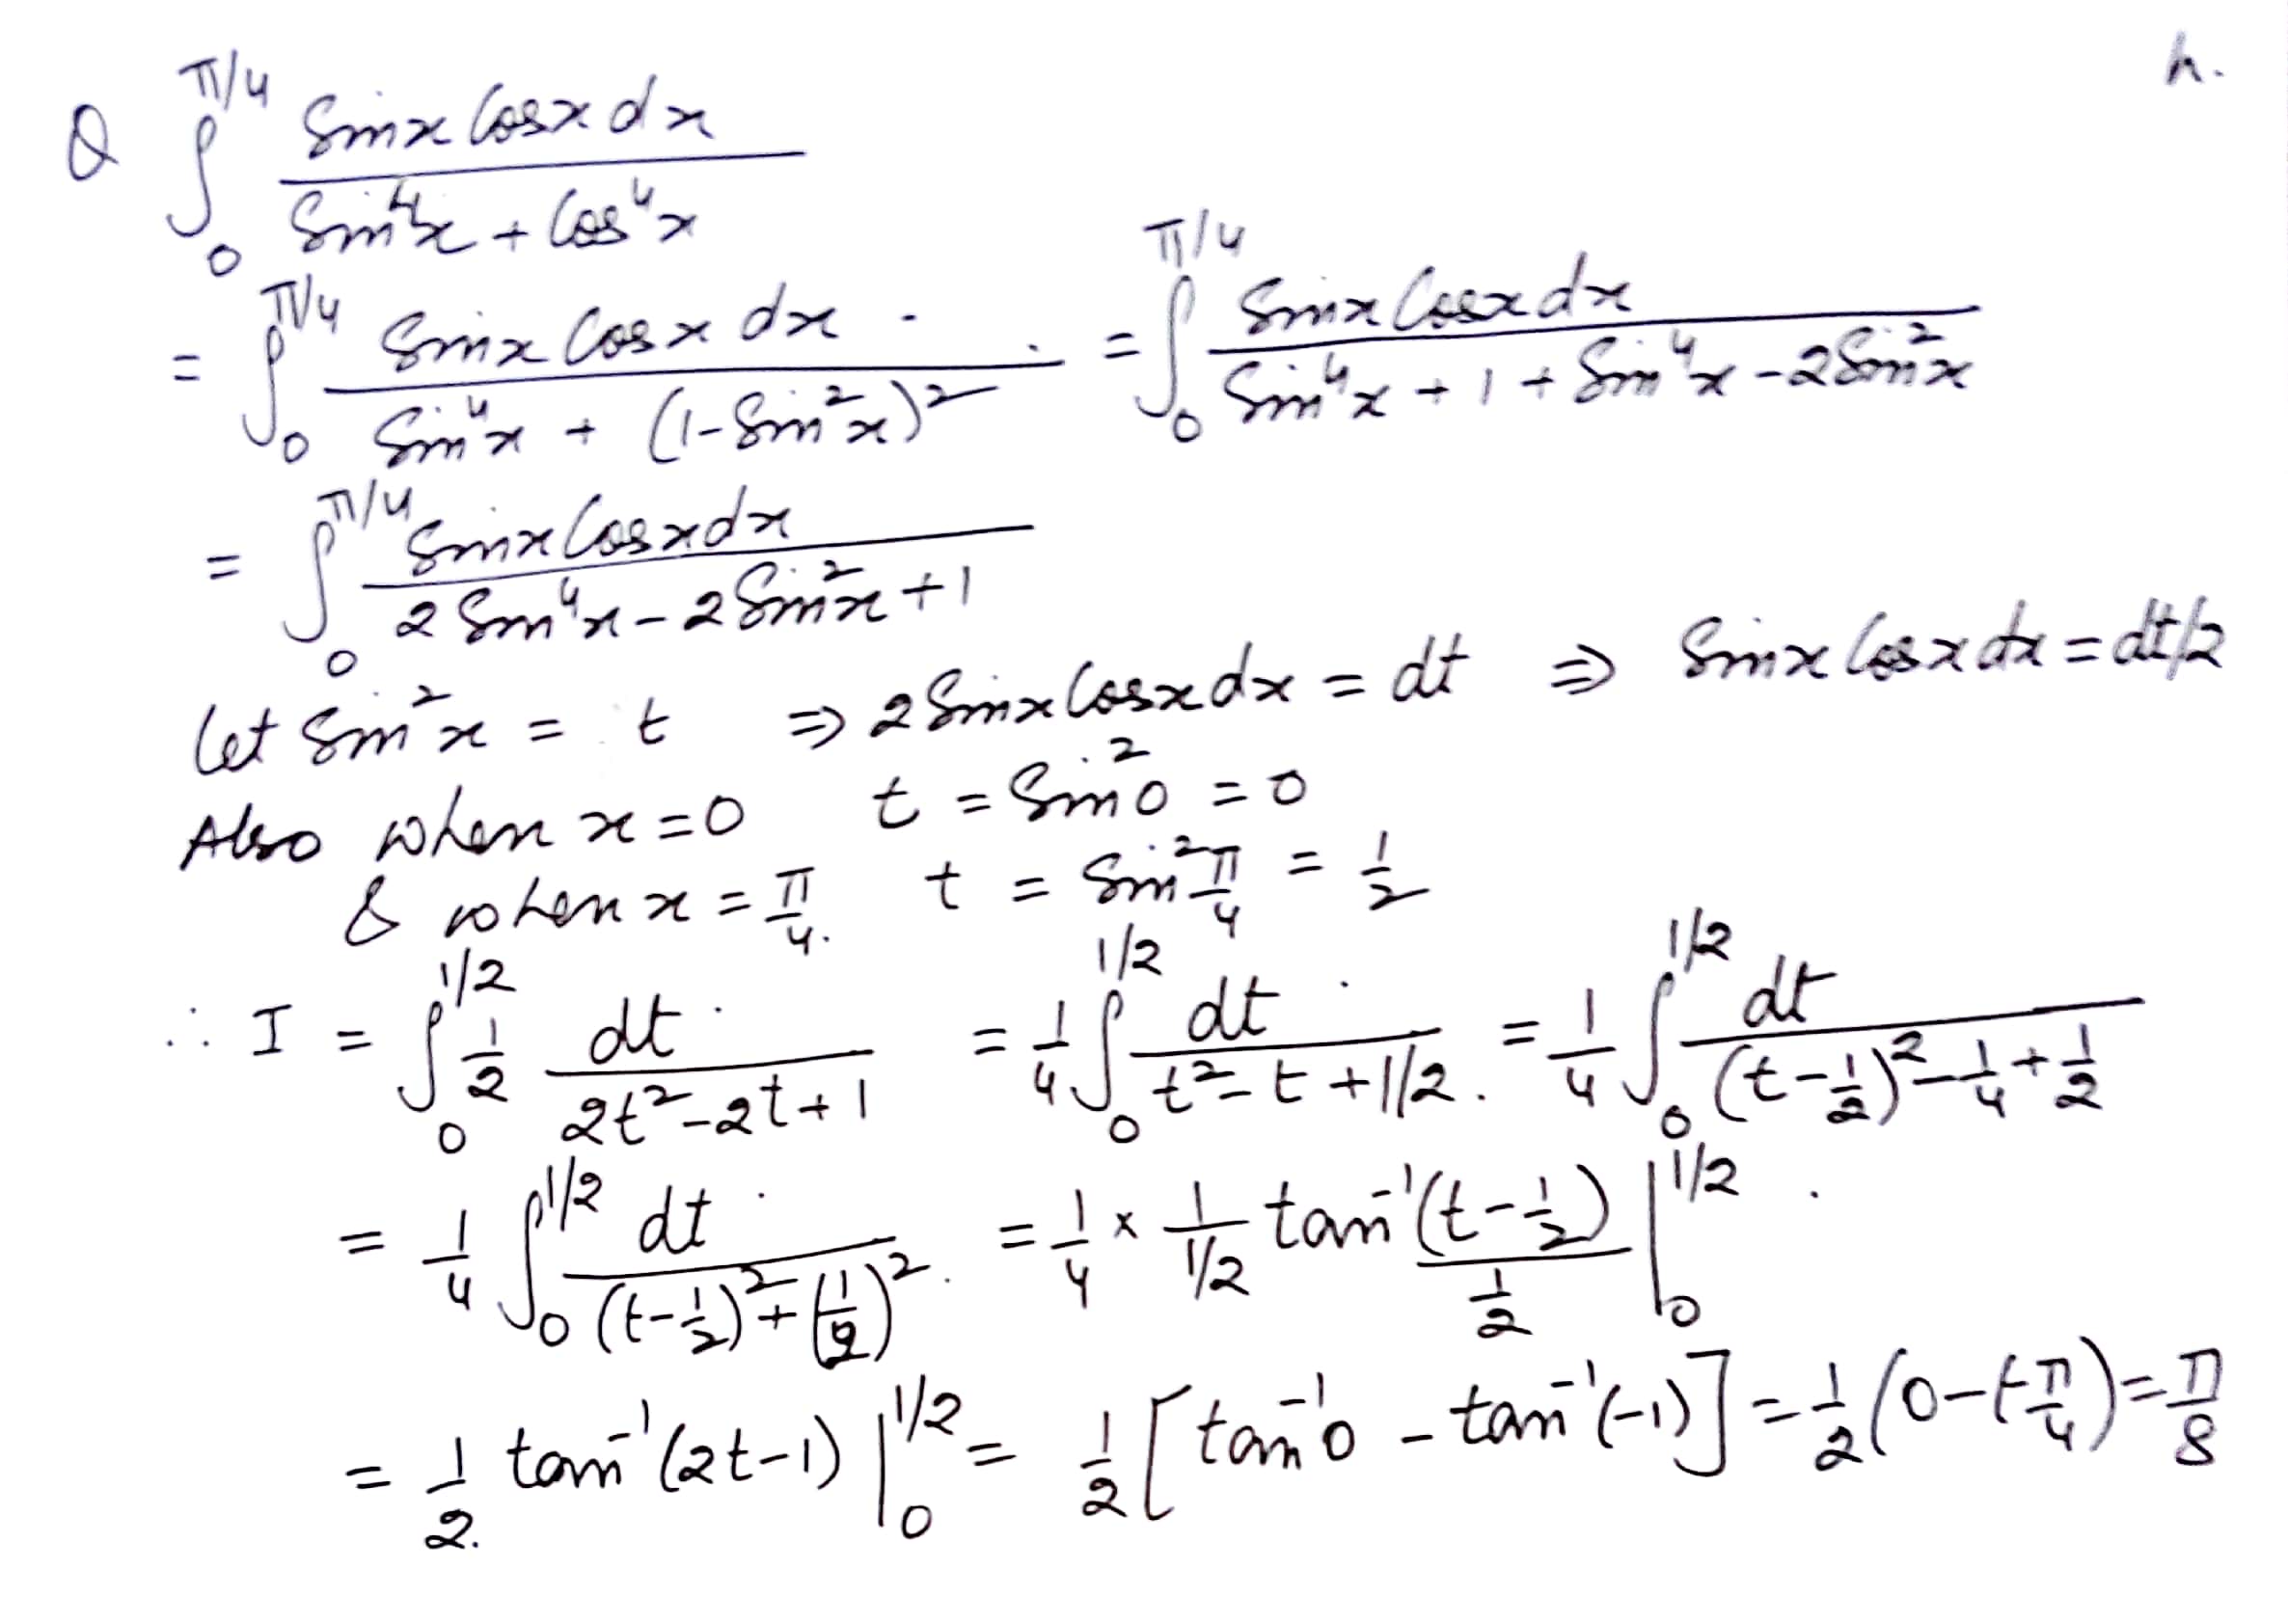 h.
Q ∫₀^{π/4} Sinx Cosx dx / (Sin⁴x + Cos⁴x)
= ∫₀^{π/4} Sinx Cosx dx / (Sin⁴x + (1-Sin²x)²) = ∫₀^{π/4} Sinx Cosx dx / (Sin⁴x + 1 + Sin⁴x - 2Sin²x)
= ∫₀^{π/4} Sinx Cosx dx / (2 Sin⁴x - 2 Sin²x + 1)
Let Sin²x = t ⇒ 2 Sinx Cosx dx = dt ⇒ Sinx Cosx dx = dt/2
Also when x = 0 t = Sin²0 = 0
& when x = π/4. t = Sin²π/4 = 1/2
∴ I = ∫₀^{1/2} 1/2 dt / (2t² - 2t + 1) = 1/4 ∫₀^{1/2} dt / (t² - t + 1/2) . = 1/4 ∫₀^{1/2} dt / ((t - 1/2)² - 1/4 + 1/2)
= 1/4 ∫₀^{1/2} dt / ((t - 1/2)² + (1/2)²) . = 1/4 × 1/(1/2) tan⁻¹ (t - 1/2) / (1/2) |₀^{1/2} .
= 1/2. tan⁻¹(2t-1) |₀^{1/2} = 1/2 [tan⁻¹0 - tan⁻¹(-1)] = 1/2 (0 - (-π/4) = π/8